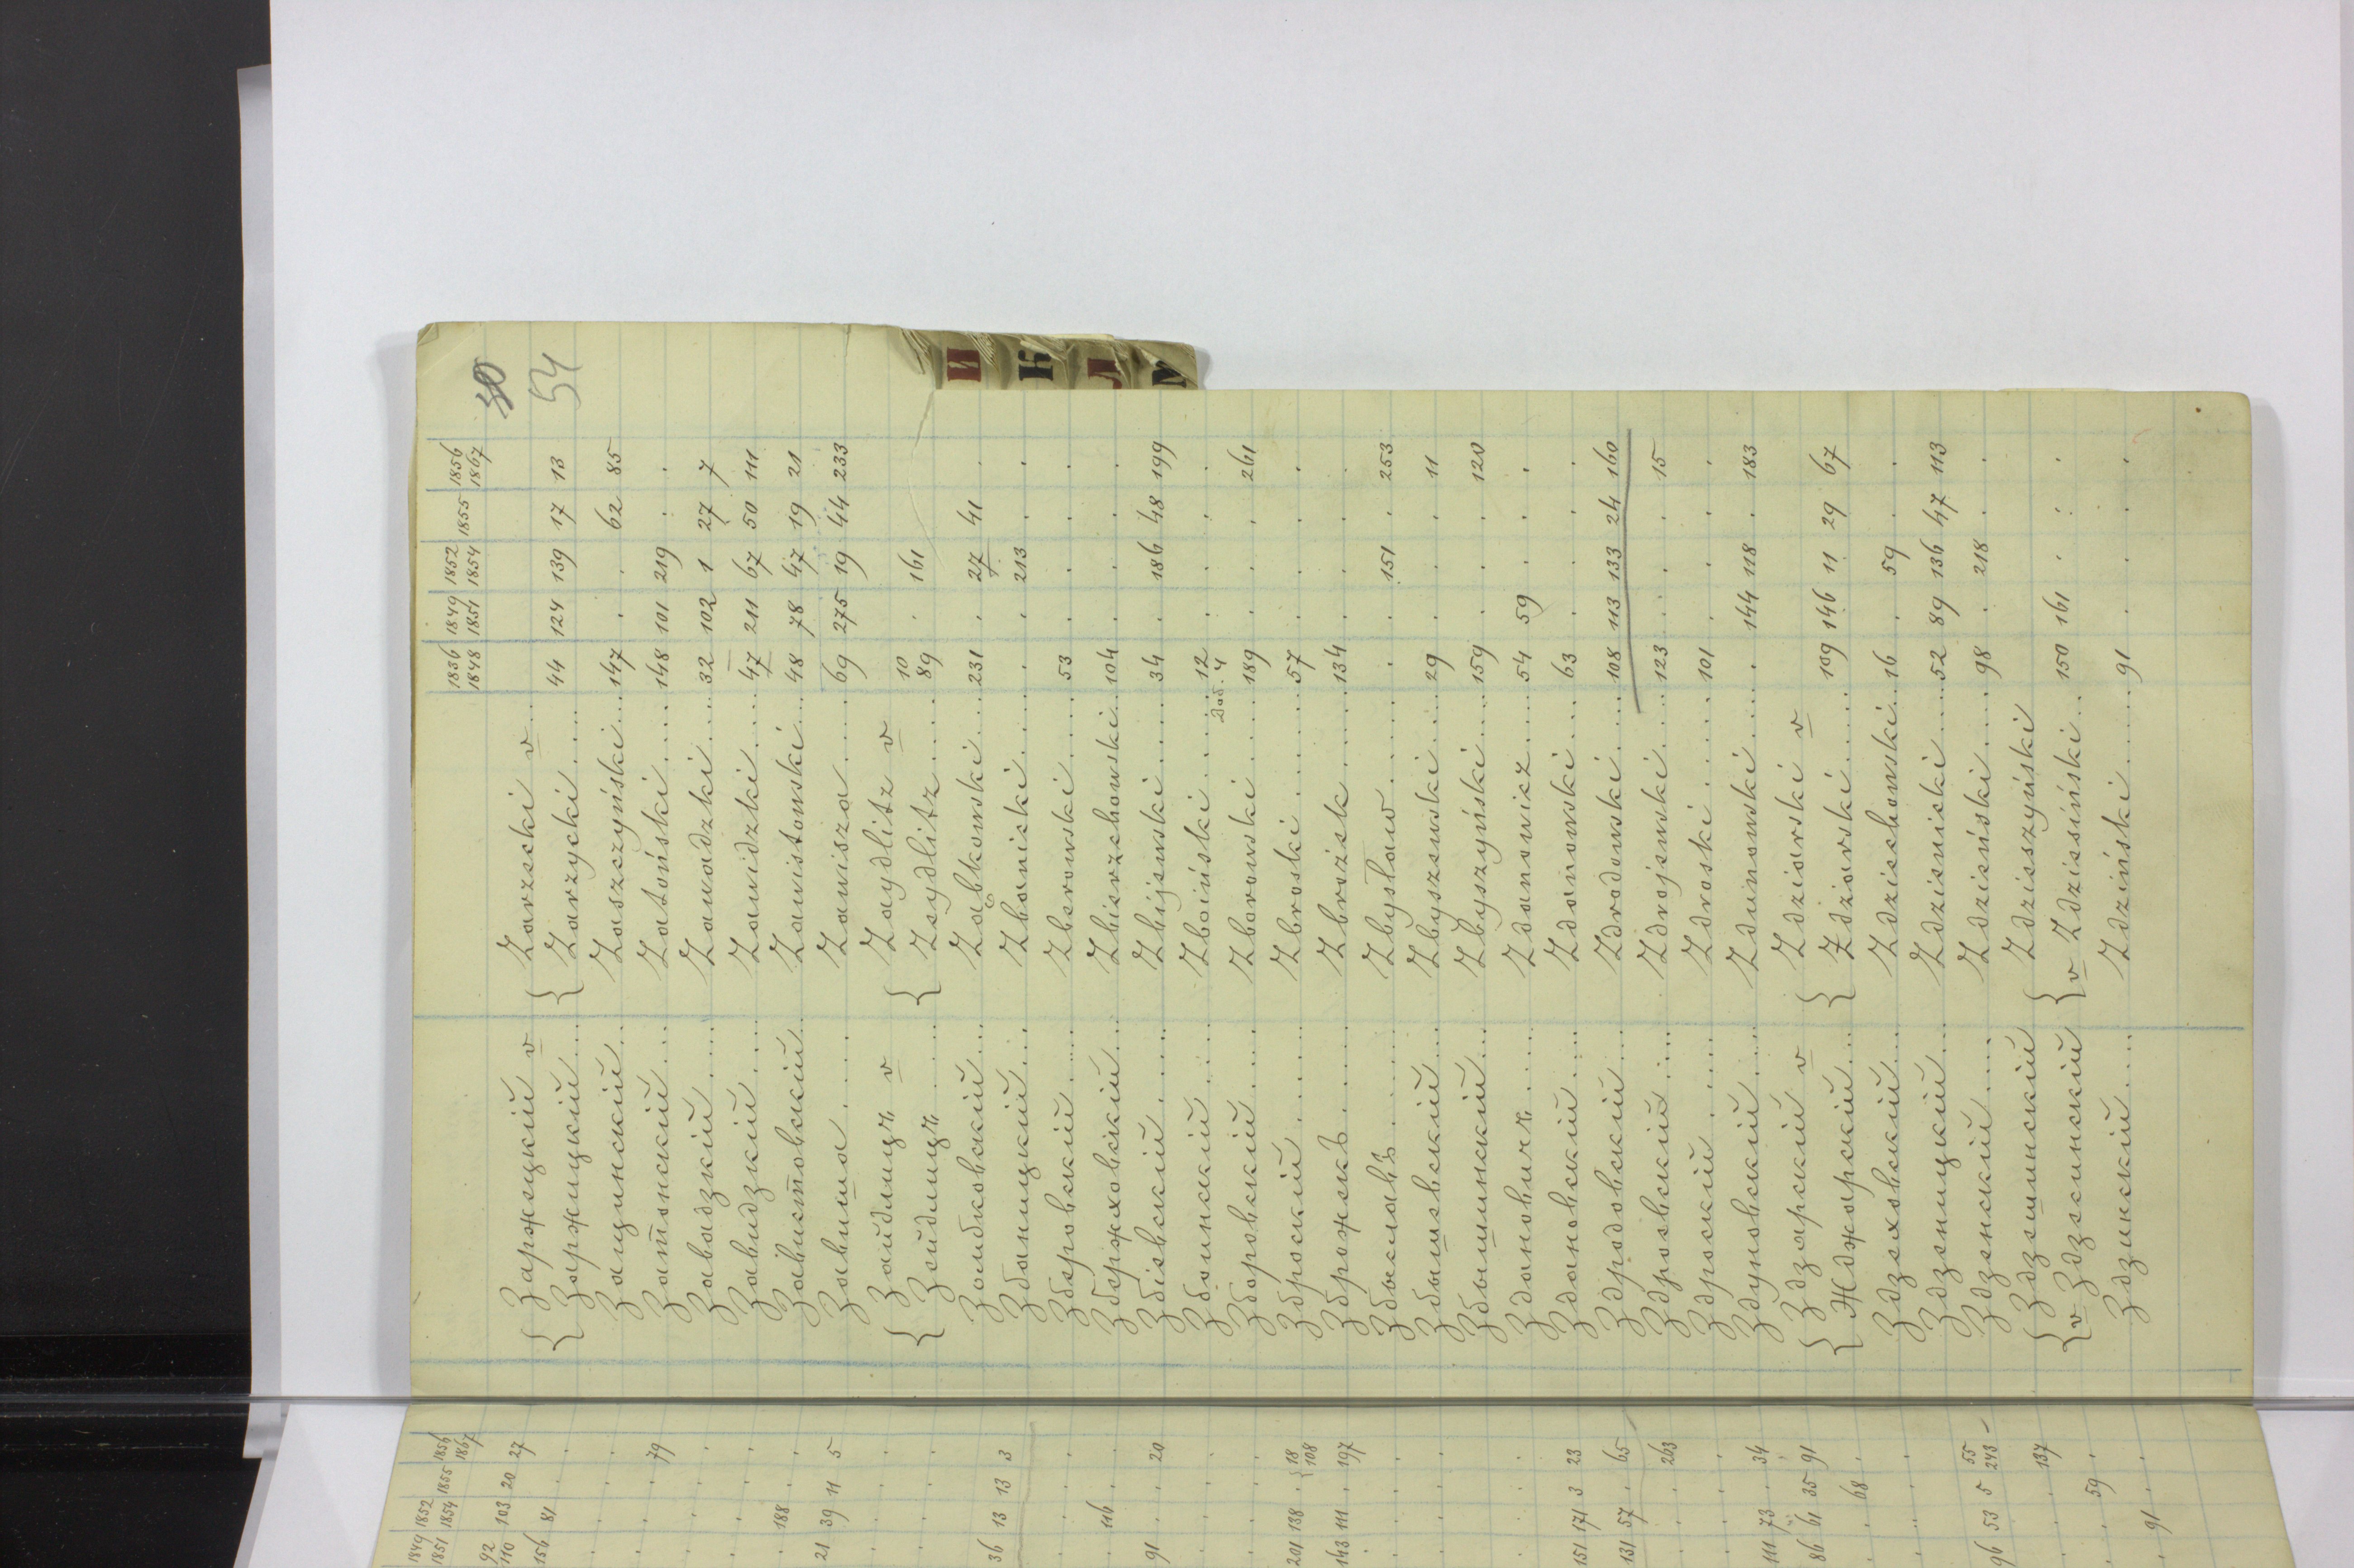 50
54
1836 1848 | 1849 1851 | 1852 1854 | 1855 | 1856 1867
{ Заржецкій v Zarzecki v
{ Заржицкій Zarzycki 44 124 139 17 13
Защинскій Zaszczyński 147 . . 62 85
Затонскій Zatoński 148 101 219 . .
Завадзкій Zawadzki 32 102 1 27 7
Завидзкій Zawidzki 47 211 67 50 111
Завистовскій Zawistowski 48 78 47 19 21
Завиша Zawisza 69 275 19 44 233
{ Зайдлицъ v Zaydlitz v 10
{ Зейдлицъ Zeydlitz 89 . 161
Зомбковскій Ząbkowski 231 . 27 41 .
Збаницкій Zbanicki . . 213 . .
Збѣровскій Zberowski 53 . . . .
Збѣржховскій Zbierzchowski 104 . . . .
Збіевскій Zbijewski 34 . 186 48 199
Збоинскій Zboiński 12 Доб. 4 . . . .
Зборовскій Zborowski 189 . . . 261
Зброскій Zbroski 57 . . . .
Зброжекъ Zbrożek 134 . . . .
Збыславъ Zbysław . . 151 . 253
Збышевскій Zbyszewski 29 . . . 11
Збышинскій Zbyszyński 159 . . . 120
Здановичъ Zdanowicz 54 59 . . .
Здановскій Zdanowski 63 . . . .
Здродовскій Zdrodowski 108 113 133 24 160
Здроевскій Zdrojewski 123 . . . 15
Здроскій Zdroski 101 . . . .
Здуновскій Zdunowski . 144 118 . 183
{ Здзярскій v Zdziarski v
{ Жджарскій Żdżarski 109 146 11 29 67
Здзеховскій Zdziechowski 16 . 59 . .
Здзеницкій Zdzienicki 52 89 136 47 113
Здзенскій Zdzieński 98 . 218 . .
{ Здзешинскій Zdzieszyński
{ v Здзесинскій v Zdziesiński 150 161 . . .
Здзинскій Zdziński 91 . . . .
1849 1851 | 1852 1854 | 1855 | 1856 1867
92 110 103 20 27
156 81 . .
79
188 . .
21 39 11 5
36 13 13 3
116 . .
91 . . 20
201 138 . { 18 108
143 111 . 197
151 171 3 23
131 57 . 65
. . . 263
111 73 . 34
86 61 35 91
. . 68 .
96 53 5 55 243
. . . 137
. . 59 .
. 91 . .